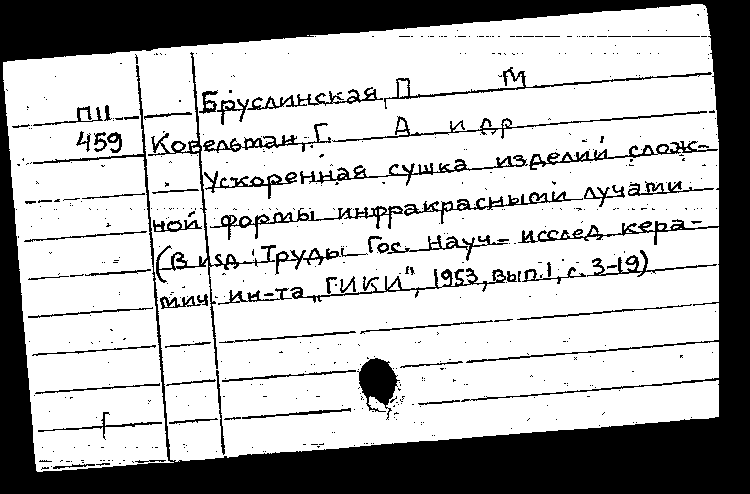 Бруслинская, П. М
ПII
459 Ковельман, Г. А и др
Ускоренная сушка изделий слож-
ной формы инфракрасными лучами.
(В изд: Труды Гос. Науч.-исслед. кера-
мич. ин-та „ГИКИ", 1953, вып.1, с. 3-19)